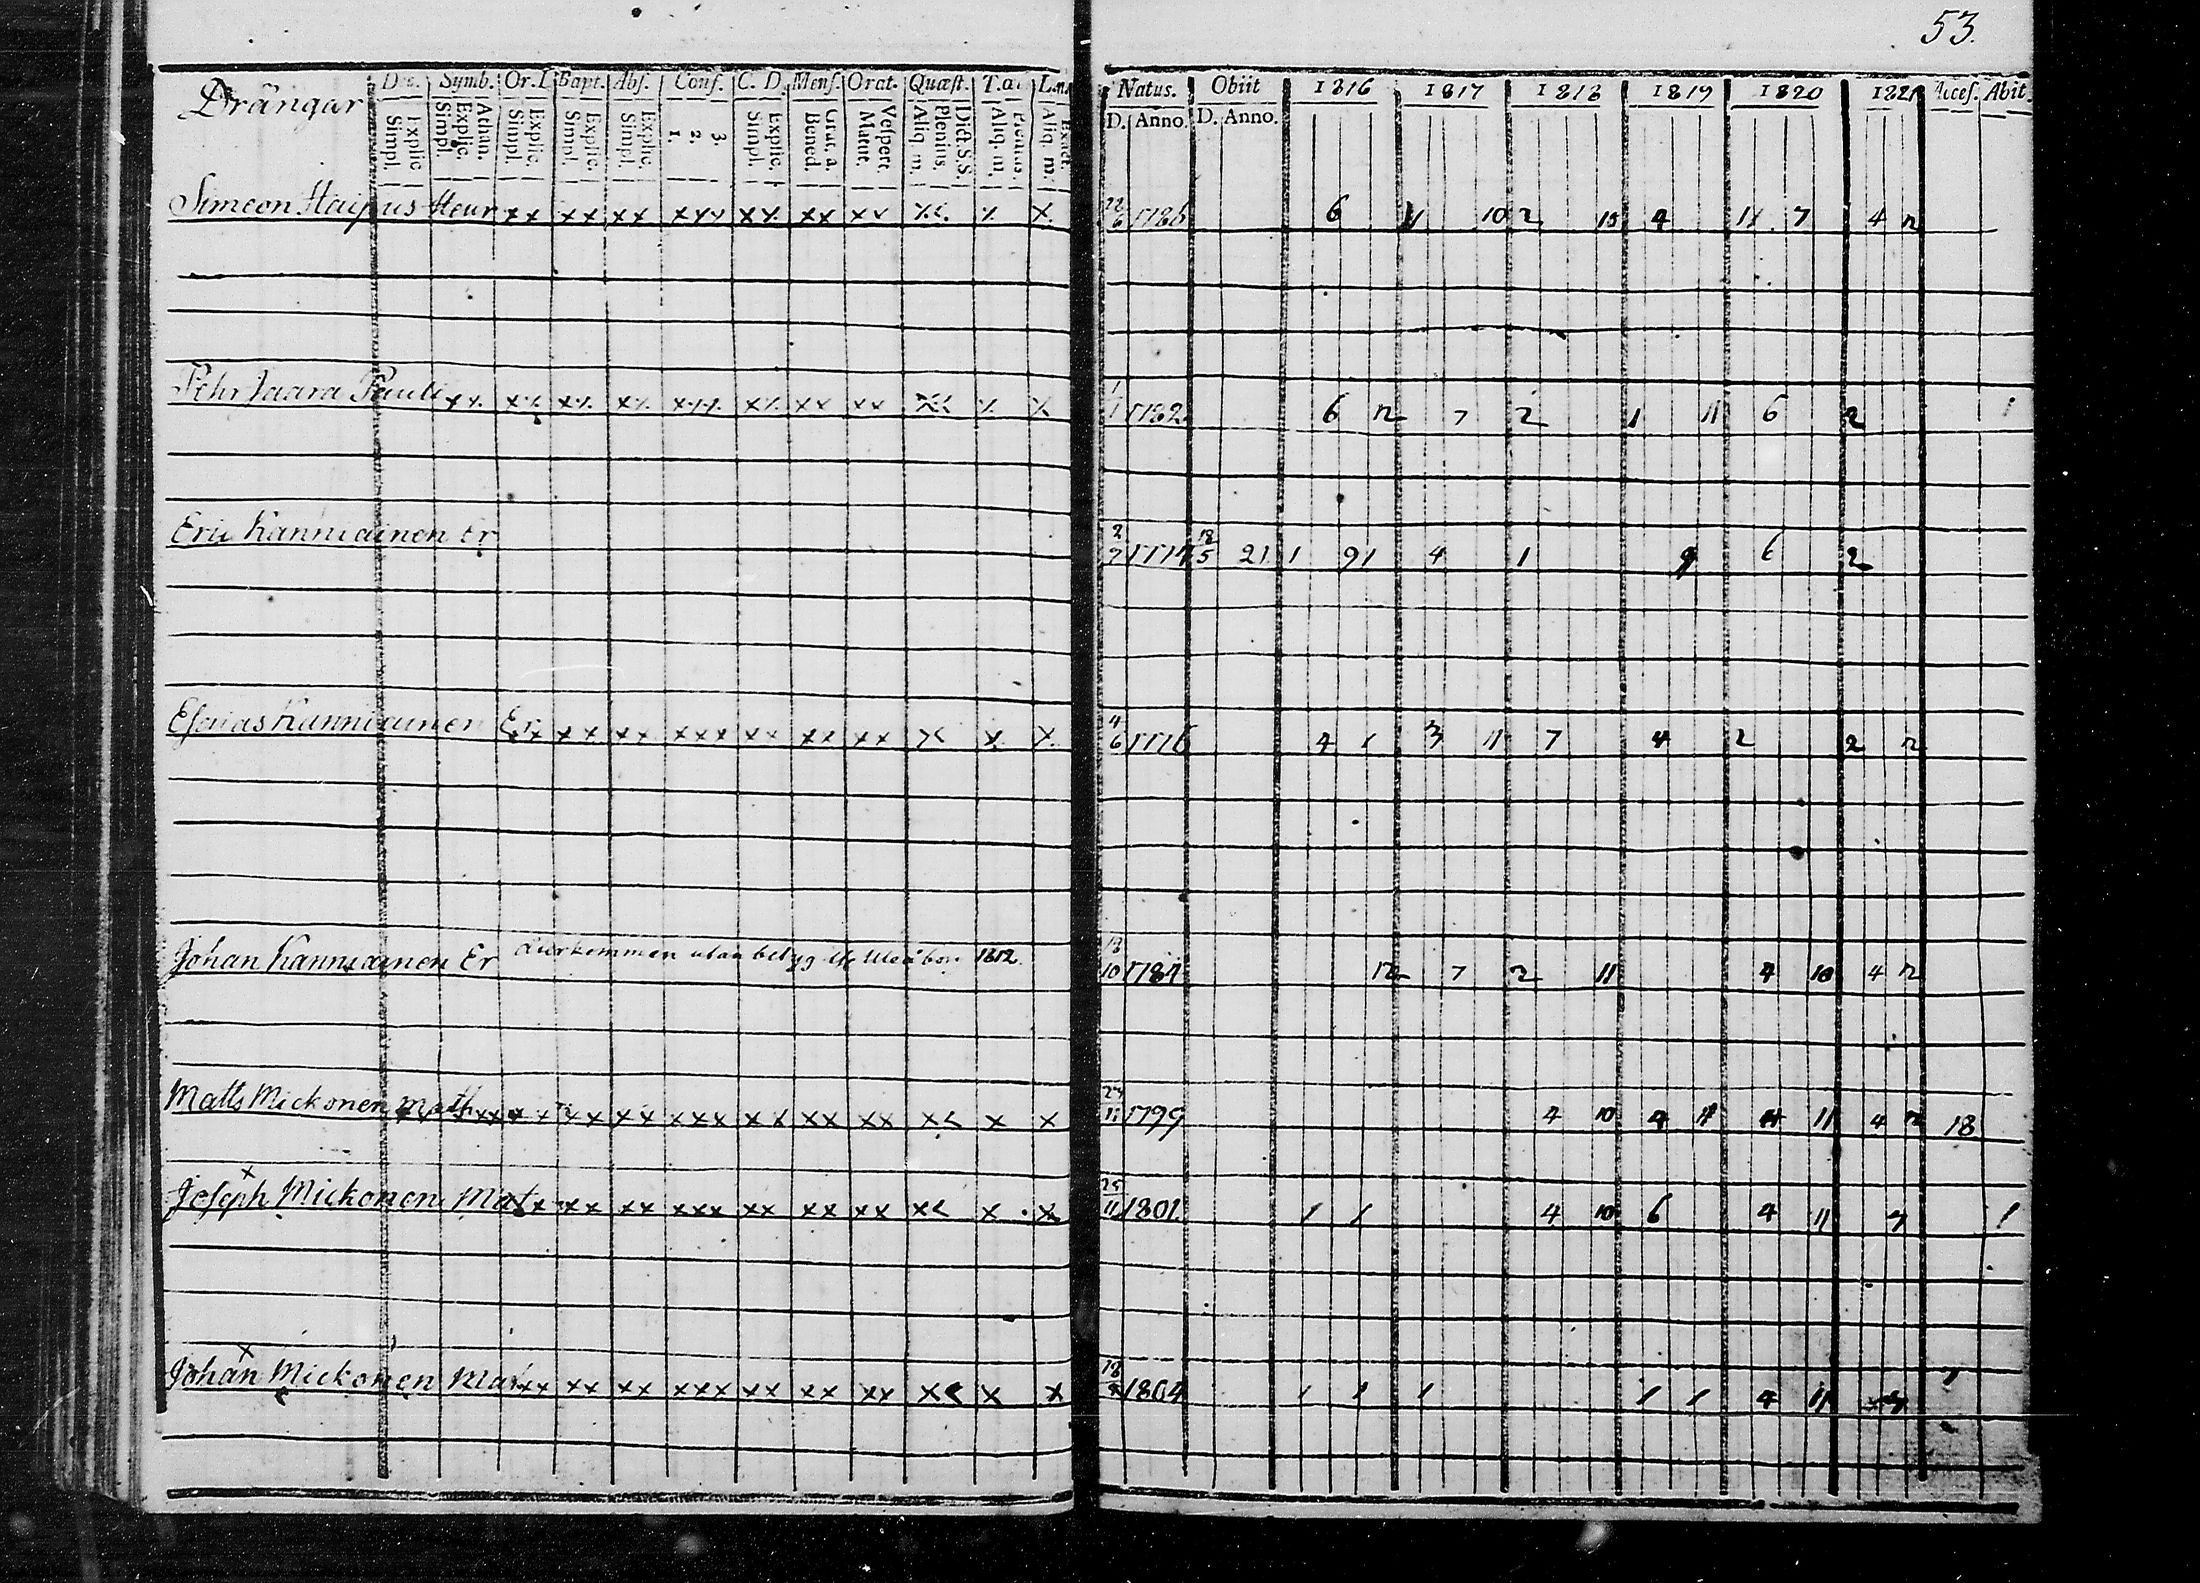 53.
Drängar Symb. Or. D Bapt. Abs. Conf. C. D. Mens. Orat. Quæst. L. Natus. Obiit 1816 1817 1818 1819 1820 1821 Acces. Abit.
Explic. Simpl. Athan. Explic. Simpl. Explic. Simpl. Explic. Simpl. Explic. Simpl. 3. 2. 1. Explic. Simpl. Grat. a. Bened. Vespert. Matut. Dict. S.S. Plenius. Aliq. m. Plenius. Aliq. m. Exact. Aliq. m. D. Anno. D. Anno.
Simeon xx xx xx xxx xx xx xx x< x x 22/6 1786 6 11 10 2 10 4 11 7 4 12
Pehr Jaara Pauli xx xx xx xx xxx xx xx xx x x 1/1 1782 6 12 7 2 1 11 6 2 1
Eric Kanniainen Er 2/7 1774 18/5 21 1 9 1 4 1 9 6 2
Esaias Kanniainen Er xx xx xxx xx xx xx x< x x 4/6 1776 4 1 3 11 7 4 2 2 12
Johan Kanniainen Er återkommen utan betyg ifr Uleåborg 1812. 18/10 1784 12 7 2 11 4 10 4 12
Matts Mickonen Math xx xx xx xx xxx xx xx xx x< x x 27/11 1799 4 10 4 11 4 11 4 12 18
x
Joseph Mickonen Mat xx xx xx xxx xx xx xx x< x x 25/11 1801 1 1 4 10 6 4 11 7 1
x
Johan Mickonen Mat xx xx xx xxx xx xx xx x< x x 18/9 1804 1 1 1 1 1 4 11